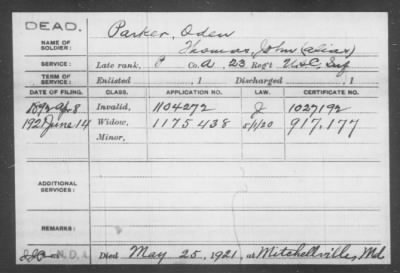 DEAD.
NAME OF SOLDIER:
Parker, Oden
Thomas, John (alias)
SERVICE: Late rank, P Co. A, 23 Reg't U.S.C. Inf
TERM OF SERVICE: Enlisted , 1 Discharged , 1
DATE OF FILING. CLASS. APPLICATION NO. LAW. CERTIFICATE NO.
1892 Apr 8 Invalid, 1104272 J 1027192
1921 June 14 Widow, 1175438 5/1/20 917,177
Minor,
ADDITIONAL SERVICES:
REMARKS:
Died May 25, 1921, at Mitchellville, Md